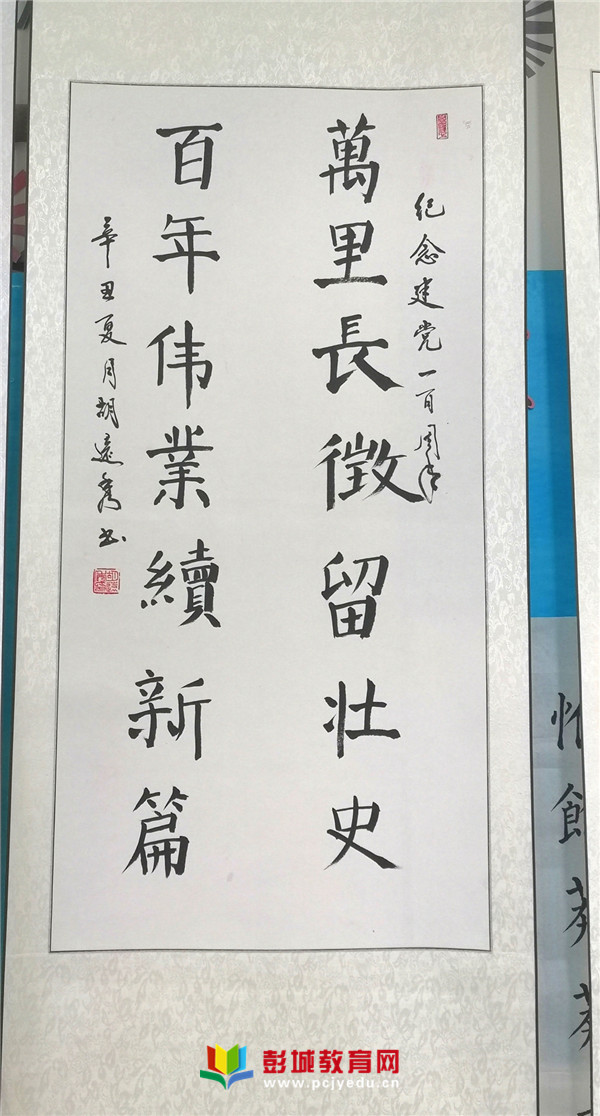 纪念建党一百周年
萬里長徵留壮史
百年伟業續新篇
辛丑夏月胡遠秀书
彭城教育网
www.pcjyedu.cn